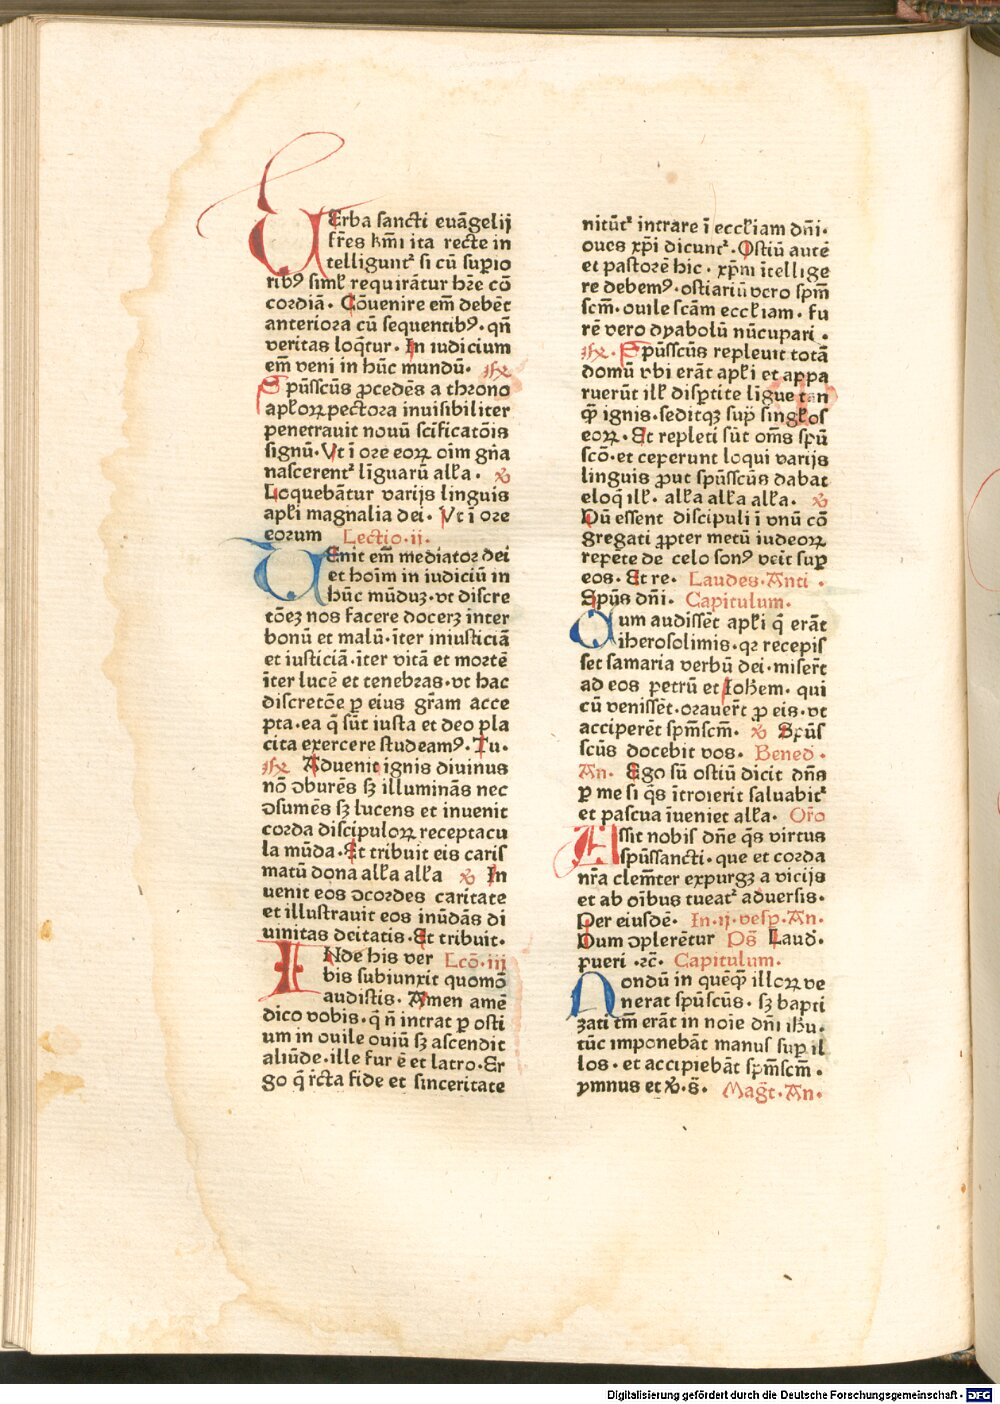 VErba sancti euāgelij
fr̄es kr̄mi ita recte in
telligunt᷑ si cū supio
ribꝰ simł requirāt᷑ur hr̄e cō
cordiā. Cōuenire em̄ debēt
anteriora cū sequentibꝰ. qn̄
veritas loq̄tur. In iudicium
em̄ veni in hūc mundū. ℟
Spūsscūs ꝓcedēs a throno
apłoꝝ pectora inuisibiliter
penetrauit nouū scificatōis
signū. Vt ī ore eoꝝ oīm gn̄a
nascerent᷑ līguarū ałła. ℣
Loquebātur varijs linguis
apłi magnalia dei. Vt ī ore
eorum Lectio. ij.
VEnit em̄ mediator dei
et hoīm in iudiciū in
hūc mūduꝫ. vt discre
tōeꝫ nos facere docerꝫ inter
bonū et malū. īter iniusticiā
et iusticiā. īter vitā et mortē
īter lucē et tenebras. vt hac
discretōe ꝑ eius gr̄am acce
pta. ea q̄ sūt iusta et deo pla
cita exercere studeamꝰ. Tu.
℟ Aduenit ignis diuinus
nō ꝯburēs sꝫ illuminās nec
ꝯsumēs sꝫ lucens et inuenit
corda discipuloꝝ receptacu
la mūda. Et tribuit eis caris
matū dona ałła ałła ℣ In
uenit eos ꝯcordes caritate
et illustrauit eos inūdās di
uinitas deitatis. Et tribuit.
INde his ver Lcō. iij
bis subiunxit quomō
audistis. Amen amē
dico vobis. q̄ n̄ intrat ꝑ osti
um in ouile ouiū sꝫ ascendit
aliūde. ille fur ē et latro. Er
go q̄ r̄cta fide et sinceritate
nitūt᷑ intrare ī eccłiam dn̄i.
oues xp̄i dicunt᷑. Ostiū autē
et pastorē hic. xp̄m ītellige
re debemꝰ. ostiariū vero spm̄
scm̄. ouile scām eccłiam. fu
rē vero dyabolū nūcupari.
℟. Spūsscūs repleuit totā
domū vbi erāt apłi et appa
ruerūt iłł disptite līgue tan
q̄ ignis. seditqꝫ sup̄ singłos
eoꝝ. Et repleti sūt om̄s spū
scō. et ceperunt loqui varijs
linguis ꝓut spūsscūs dabat
eloq̄ iłł. ałła ałła ałła. ℣
Dū essent discipuli ī vnū cō
gregati ꝓpter metū iudeoꝝ
repēte de celo sonꝰ veīt sup̄
eos. Et re. Laudes. Anti.
Spūs dn̄i. Capitulum.
Cum audissēt apłi q̄ erāt
iherosolimis. qꝛ recepis
set samaria verbū dei. miser̄t
ad eos petrū et Iohem. qui
cū venissēt. orauer̄t ꝓ eis. vt
acciperēt spm̄scm̄. ℣ Spūs
scūs docebit vos. Bened.
An. Ego sū ostiū dicit dn̄s
ꝑ me si q̄s ītroierit saluabit᷑
et pascua īueniet ałła. Oro
Assit nobis dn̄e q̄s virtus
spūssancti. que et corda
nr̄a clem̄ter expurgꝫ a vicijs
et ab oībus tueat᷑ aduersis.
Per eiusdē. In. ij. vesp. An.
Dum ꝯplerētur Ps̄ Laud.
pueri. ꝛc̄. Capitulum.
Nondū in quēq̄ illoꝝ ve
nerat spūscūs. sꝫ bapti
zati tm̄ erāt in noīe dn̄i ihu.
tūc imponebāt manus sup̄ il
los. et accipiebāt spm̄scm̄.
ymnus et ℣. s̄. Magt̄. An.
Digitalisierung gefördert durch die Deutsche Forschungsgemeinschaft - DFG